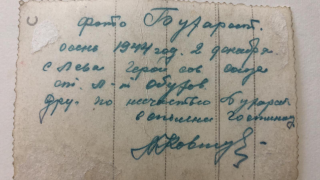 фото Бухарест.
осень 1944 год. 2 декабря
с лева герой сов союз
ст. л-т
друг по несчастью Бухарест
гостиниц